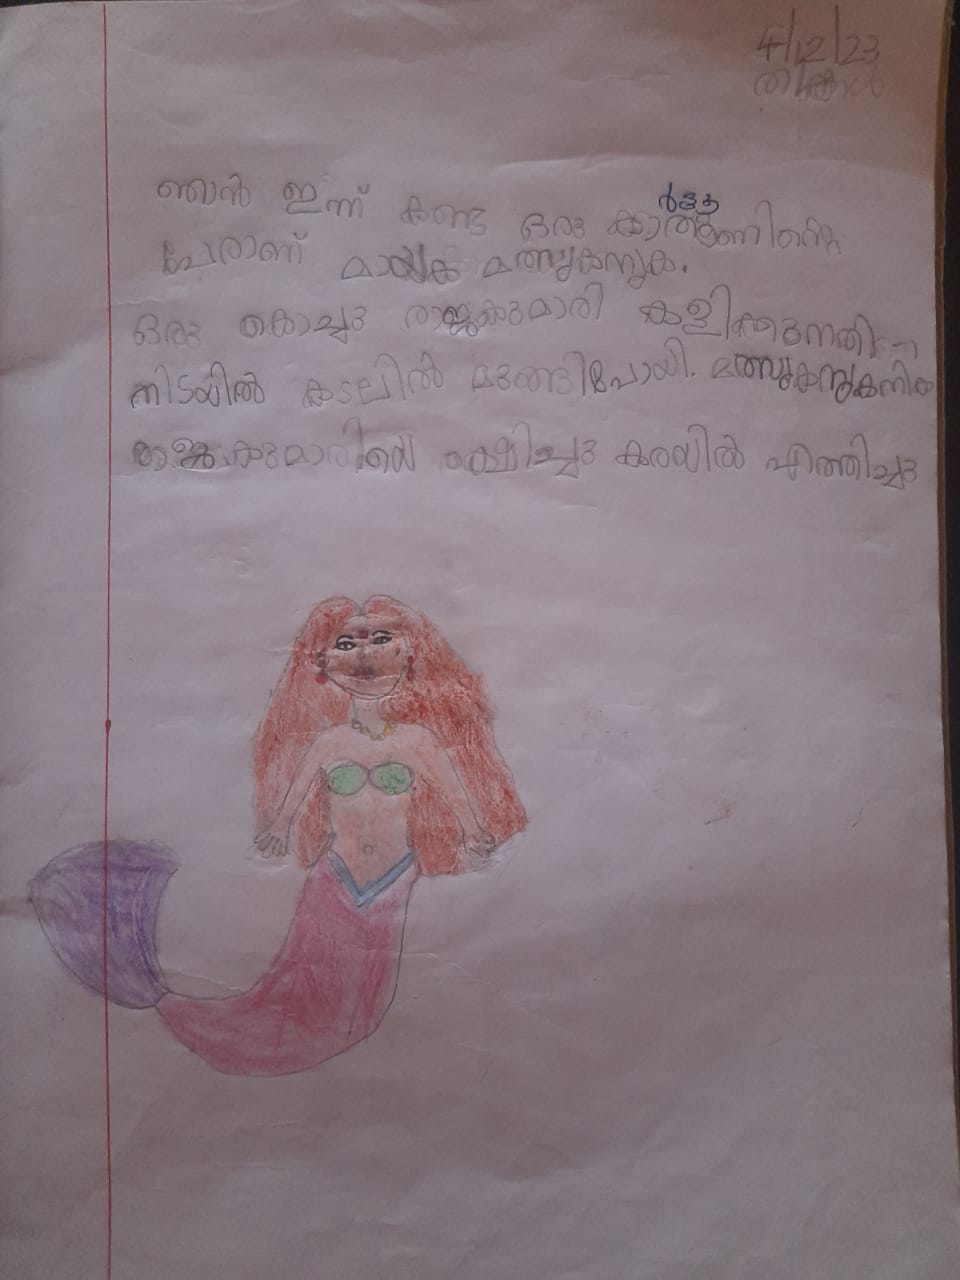 4/12/23
തിങ്കൾ
ഞാൻ ഇന്ന് കണ്ട ഒരു കാർട്ടൂണിന്റെ
പേരാണ് മായക മത്സ്യകന്യക.
ഒരു കൊച്ചു രാജകുമാരി കളിക്കുന്നതി
നിടയിൽ കടലിൽ മുങ്ങിപോയി. മത്സ്യകന്യക
രാജകുമാരിയെ രക്ഷിച്ചു കരയിൽ എത്തിച്ചു